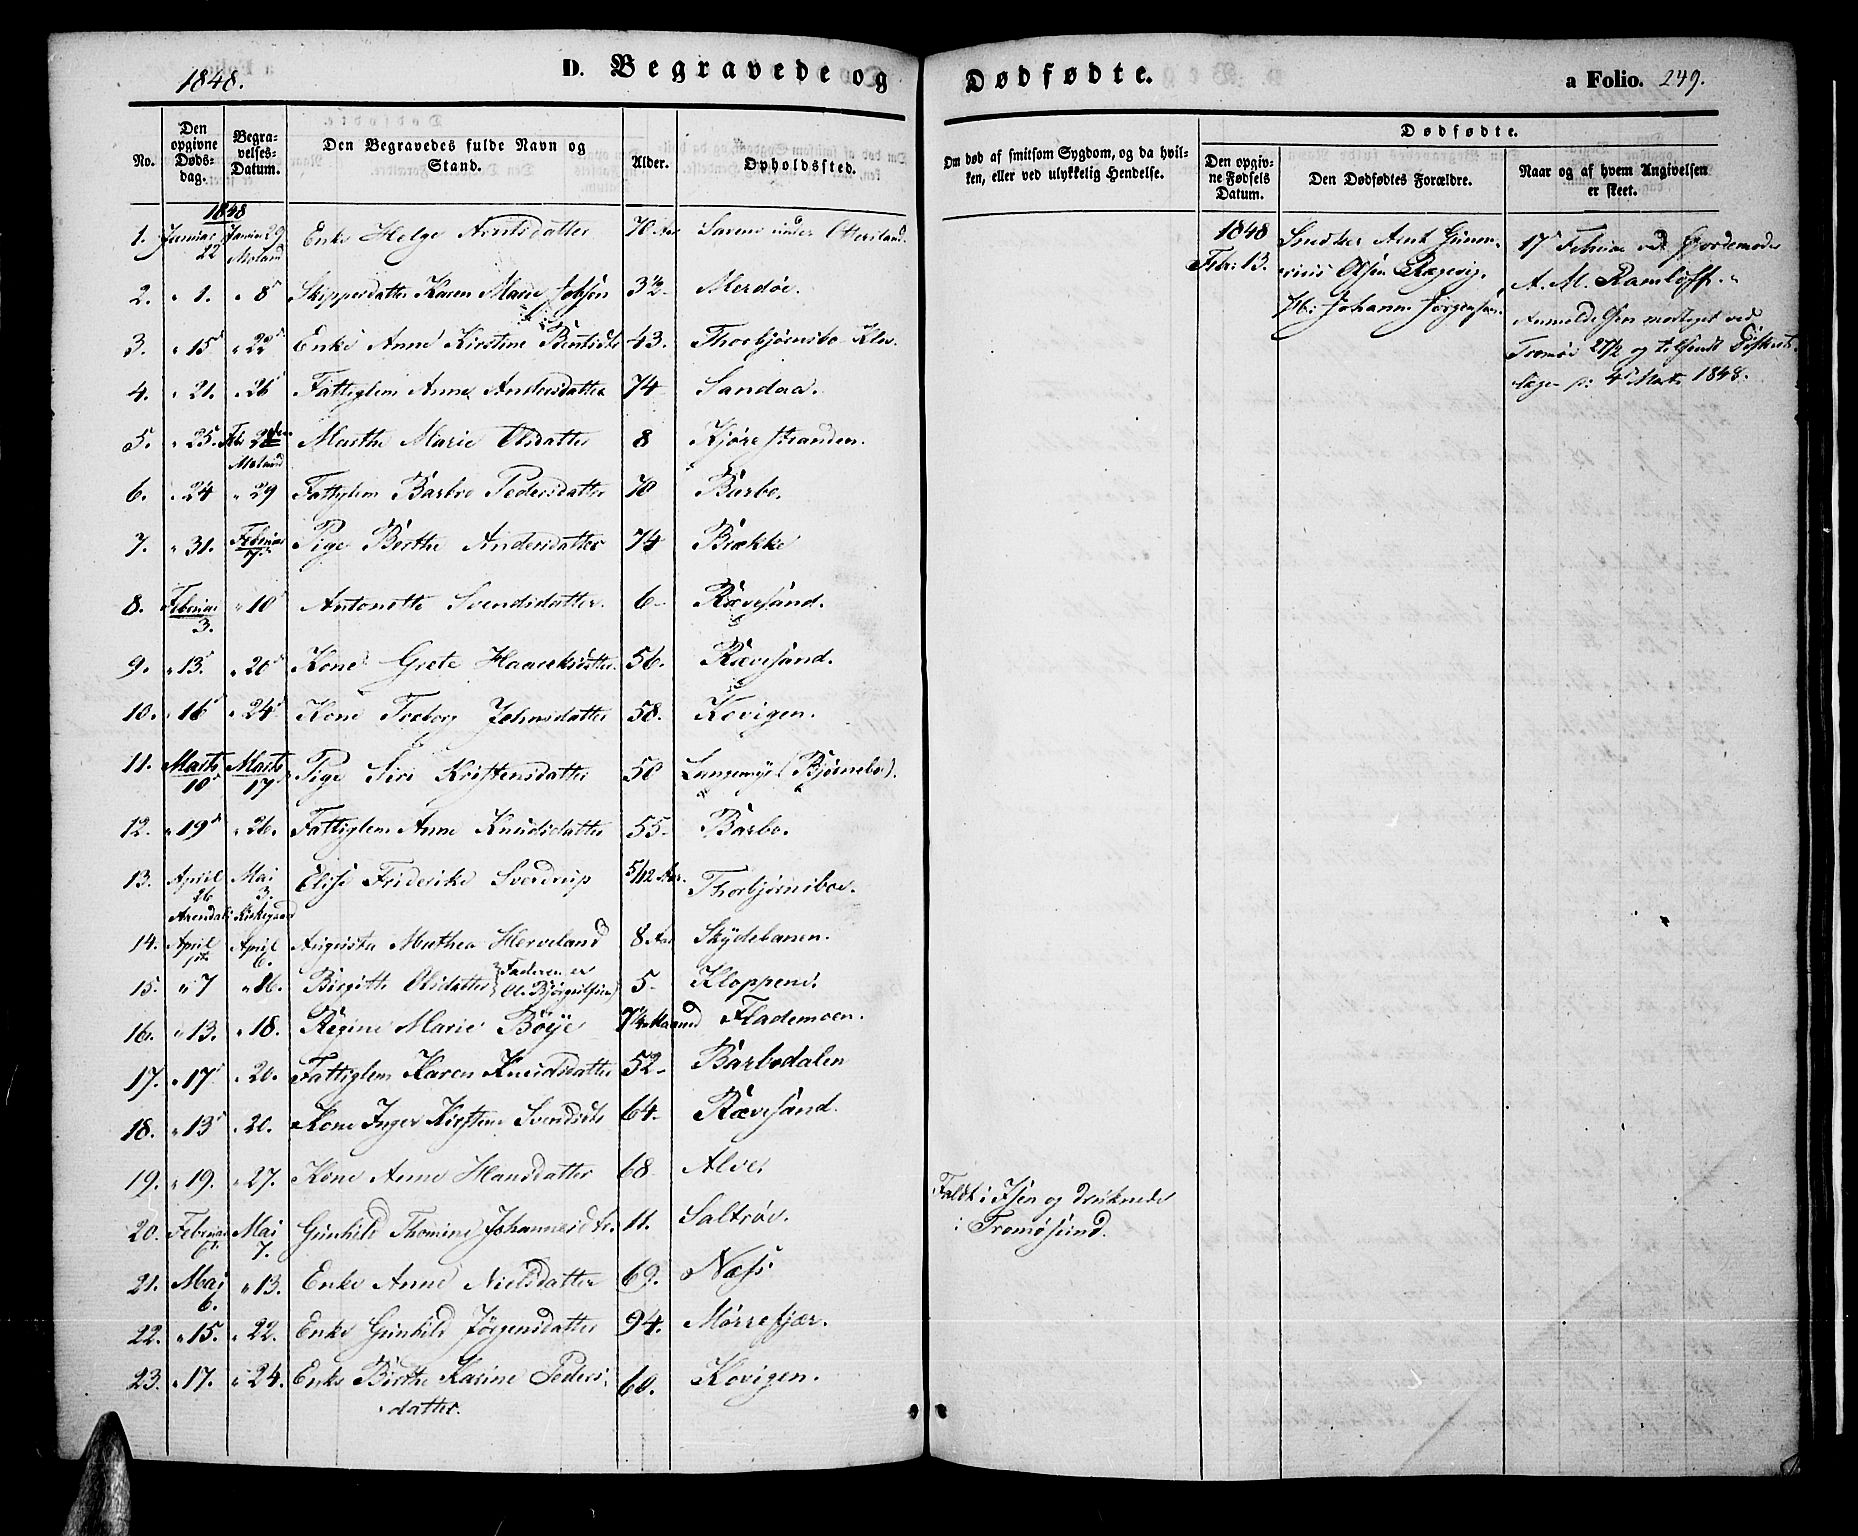 1848.
D. Begravede og Dødfødte.
a Folio. 249.
No.
Den opgivne Døds-dag.
Begra-velses-Datum.
Den Begravedes fulde Navn og Stand.
Alder.
Opholdssted.
Om død af smitsom Sygdom, og da hvil-
ken, eller ved ulykkelig Hendelse.
Dødfødte.
Den opgiv-
ne Fødsels
Datum.
Den Dødfødtes Forældre.
Naar og af hvem Angivelsen
er skeet.
1848
1. Januar 22 Januar 29 Moland Enke Helge Arntsdatter 70 Aar under
2. " 1. " 8 Skippersdatter Karen Marie Jobsen 3½ Merdøe.
3. " 15 " 22 Enke Anne Kirstine 43. Thorbjørnsbo
4. " 21. " 26 Fattiglem Anne Andersdatter 74 Sandaa.
5. " 25. Febr Moland Marthe Marie Olsdatter 8 Kjørrestranden.
6. " 24 " 29 Fattiglem Barbro Pedersdatter 70 Barbo.
7. " 31. Februar 7. Pige Berthe Andersdatter 74 Brække
8. Februar 3. " 10 Antonette Svendsdatter. 6 Rævesand.
9. " 13. " 20 Kone Grete 56. Rævesand.
10. " 16 " 24 Kone Torborg Johnsdatter 58. Kovigen.
11. Marts 10 Marts 17. Pige Siri Kristensdatter 50 Langemyr (Bjørnebo).
12. " 19 " 26. Fattiglem Anne Knudsdatter 55 Barbo.
13. April 26 Mai 3. Elise Friderike Sverdrup 5/12 Aar. Thorbjørnsboe.
Arendals Kirkegaard
14. April April 6. Augusta Mathea Herveland 8 Aar Skydebanen.
15. " 7 " 16. Birgitte Olsdatter (Faderen er 5 Kloppene
16. " 13. " 18. Regine Marie Bøije 7¼ Maaned Flademoen.
17. " 17 " 20. Fattiglem Karen Knudsdatter 52 Barbodalen
18. " 13 " 20. Kone Inger Kirstine Svendsdtr 64 Rævesand.
19. " 19. " 27. Kone Anne Hansdatter 68 Alve
20. Februar Mai 7. Gunhild Thomine Johannesdtr. 11. Saltrøe. Faldt i Isen og druknede
i Tromøsund.
21. Mai 6. " 13. Enke Anne Nielsdatter 69. Næss
22. " 15. " 22. Enke Gunhild Jørgensdatter 94. Mørrefjær.
23. " 17. " 24. Enke Birthe Karine Peders-
datter. 60. Kovigen.
1848
Febr: 13.
Snedker Arnt Gunne-
rius Olsen Rægevig.
H: Johanne Jørgensen.
17 Februar ved Jordemoder
A. M. Ramløff.
Anmeldelsen modtaget ved
Tromøe 27/2 og tilsendt Distrikts-
lægen p: 4 Marts 1848.